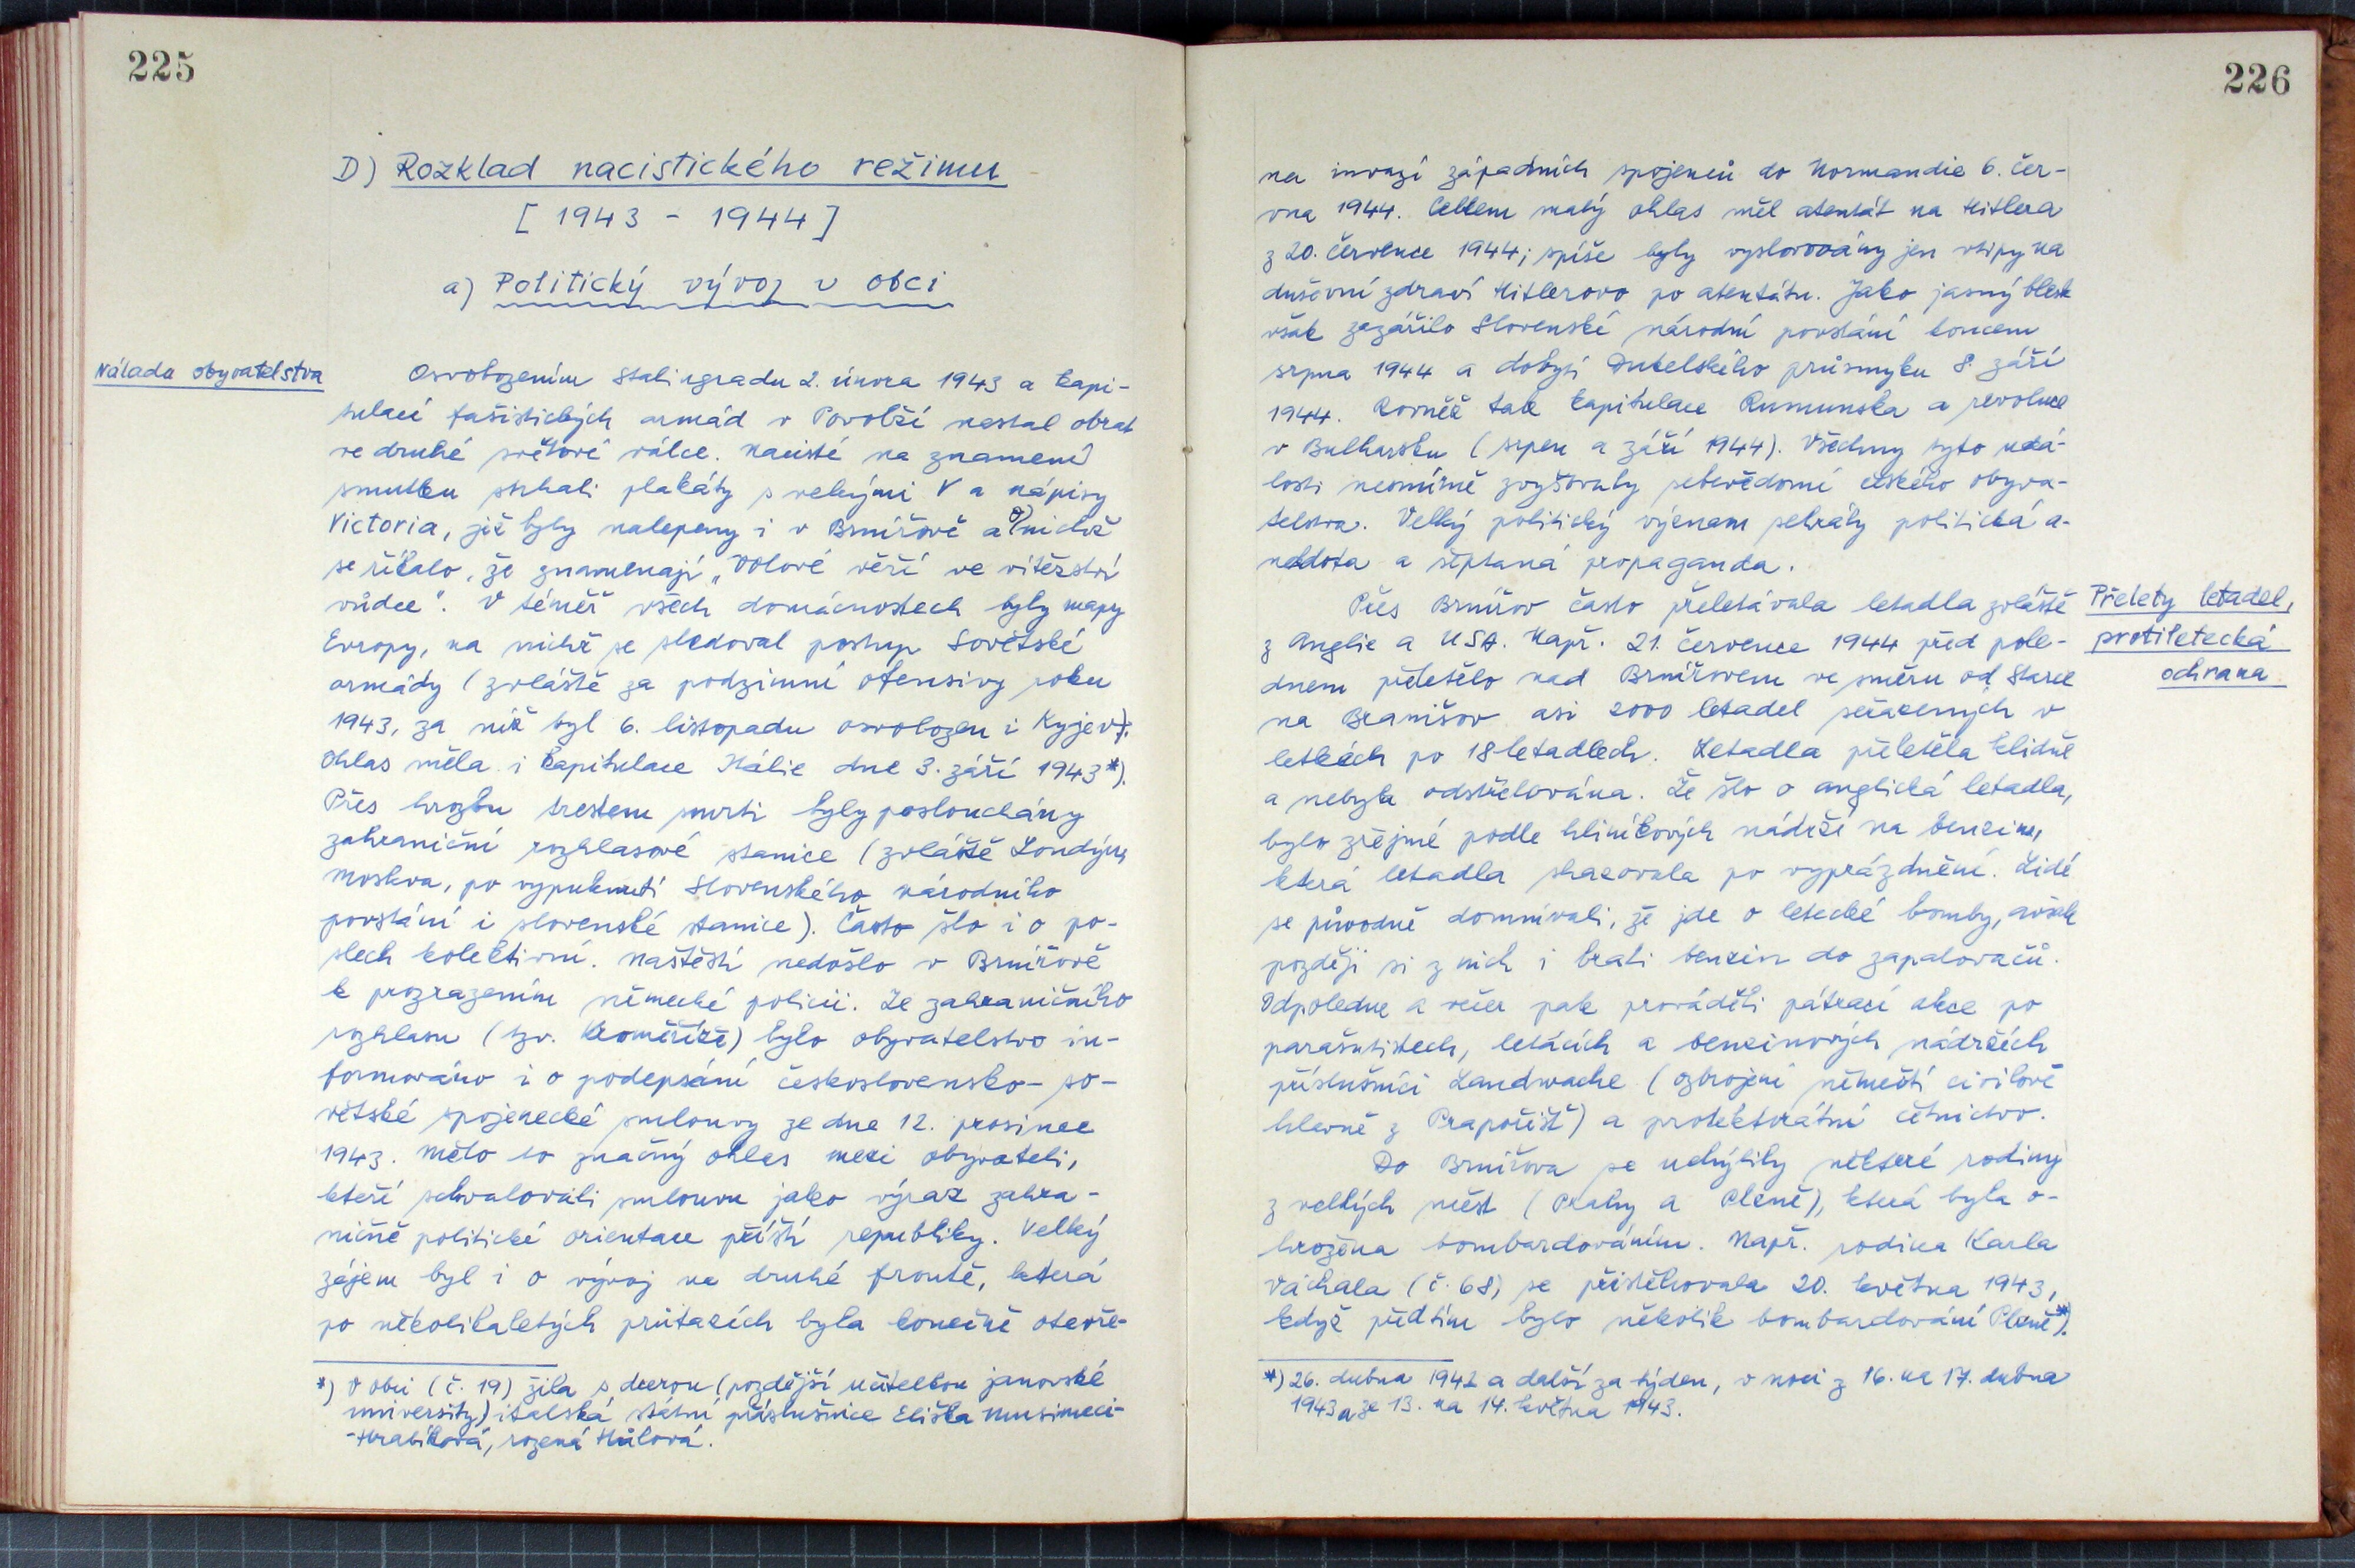 225
D) Rozklad nacistického režimu
[ 1943 - 1944 ]
a) Politický vývoj v obci
Nálada obyvatelstva
Osvobozením Stalingradu 2. února 1943 a kapi-
tulací fašistických armád v Povolží nastal obrat
ve druhé světové válce. Nacisté na znamení
smutku strhali plakáty s velkými V a nápisy
Victoria, jež byly nalepeny i v Brnířově a o nichž
se říkalo, že znamenají „Volové věří ve vítězství
vůdce". V téměř všech domácnostech byly mapy
Evropy, na nichž se sledoval postup Sovětské
armády (zvláště za podzimní ofensivy roku
1943, za níž byl 6. listopadu osvobozen i Kyjev).
Ohlas měla i kapitulace Itálie dne 3. září 1943*).
Přes hrozbu trestem smrti byly poslouchány
zahraniční rozhlasové stanice (zvláště Londýn,
Moskva, po vypuknutí Slovenského národního
povstání i slovenské stanice). Často šlo i o po-
slech kolektivní. Naštěstí nedošlo v Brnířově
k prozrazením německé policii. Ze zahraničního
rozhlasu (tzv. Kroměříže) bylo obyvatelstvo in-
formováno i o podepsání československo-so-
větské spojenecké smlouvy ze dne 12. prosince
1943. Mělo to značný ohlas mezi obyvateli,
kteří schvalovali smlouvu jako výraz zahra-
ničně politické orientace příští republiky. Velký
zájem byl i o vývoj na druhé frontě, která
po několikaletých průtazích byla konečně otevře-
*) V obci (č. 19) žila s dcerou (pozdější učitelkou janovské
university) italská státní příslušnice Eliška Musimeci-
-Hrabíková, rozená Hálová.
226
na invazí západních spojenců do Normandie 6. čer-
vna 1944. Celkem malý ohlas měl atentát na Hitlera
z 20. července 1944; spíše byly vyslovovány jen vtipy na
duševní zdraví Hitlerovo po atentátu. Jako jasný blesk
však zazářilo Slovenské národní povstání koncem
srpna 1944 a dobytí Dukelského průsmyku 8. září
1944. Rovněž tak kapitulace Rumunska a revoluce
v Bulharsku (srpen a září 1944). Všechny tyto udá-
losti nesmírně zvyšovaly sebevědomí českého obyva-
telstva. Velký politický význam sehrály politická a-
nekdota a šeptaná propaganda.
Přelety letadel,
protiletecká
ochrana
Přes Brnířov často přeletávala letadla zvláště
z Anglie a USA. Např. 21. července 1944 před pole-
dnem přeletělo nad Brnířovem ve směru od Starce
na Branišov asi 2000 letadel seřazených v
letkách po 18 letadlech. Letadla přeletěla klidně
a nebyla odstřelována. Že šlo o anglická letadla,
bylo zřejmé podle hliníkových nádrží na benzin,
která letadla shazovala po vyprázdnění. Lidé
se původně domnívali, že jde o letecké bomby, avšak
později si z nich i brali benzin do zapalovačů.
Odpoledne a večer pak prováděli pátrací akce po
parašutistech, letácích a benzinových nádržích
příslušníci Landwache (ozbrojení němečtí civilové
hlavně z Prapořišť) a protektorátní četnictvo.
Do Brnířova se uchýlily některé rodiny
z velkých měst (Prahy a Plzně), která byla o-
hrožena bombardováním. Např. rodina Karla
Váchala (č. 68) se přistěhovala 20. května 1943,
když předtím bylo několik bombardování Plzně*).
*) 26. dubna 1942 a další za týden, v noci z 16. na 17. dubna
1943 a ze 13. na 14. května 1943.